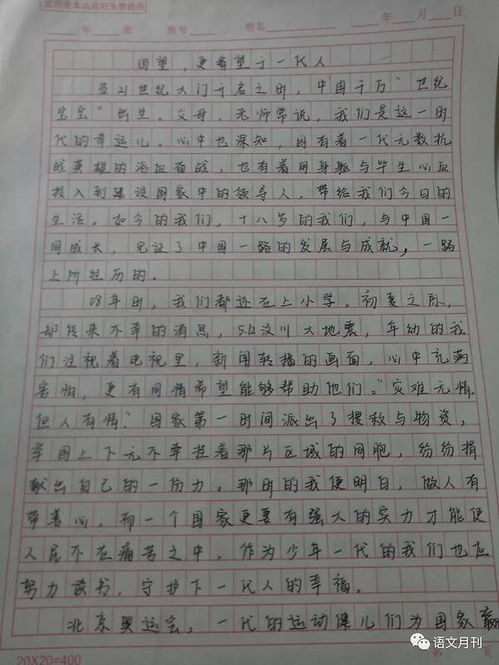 此作业本由政府免费提供
年 班 座号 姓名 年 月 日
回望，更看望于一代人
21世纪大门千名之时，中国千万“世纪
宝宝”出生。父母，老师常说，我们是这一时
代的幸运儿。心中也深知，因有着一代无数抗
战英雄的浴血奋战，也有着用身躯与毕生心血
投入到建设国家中的领导人，带给我们今日的
生活。如今的我们，十八岁的我们，与中国一
同成长，见证了中国一路的发展与成就，一路
上所经历的。
08年时，我们都还在上小学。初夏之际，
却传来不幸的消息，5.12汶川大地震，年幼的我
们注视着电视里，新闻转播的画面，心中充满
害怕，更有同情希望能够帮助他们。“灾难无情，
但人有情”国家第一时间派出了搜救与物资，
举国上下无不牵挂着那片区域的同胞，纷纷捐
献出自己的一份力。那时的我便明白，做人有
带善心，而一个国家更要有强大的实力才能使
人民不在痛苦之中，作为少年一代的我们也应
努力读书，守护下一代人的幸福。
北京奥运会，一代的运动健儿们为国家赢
20X20=400
第 页
语文月刊